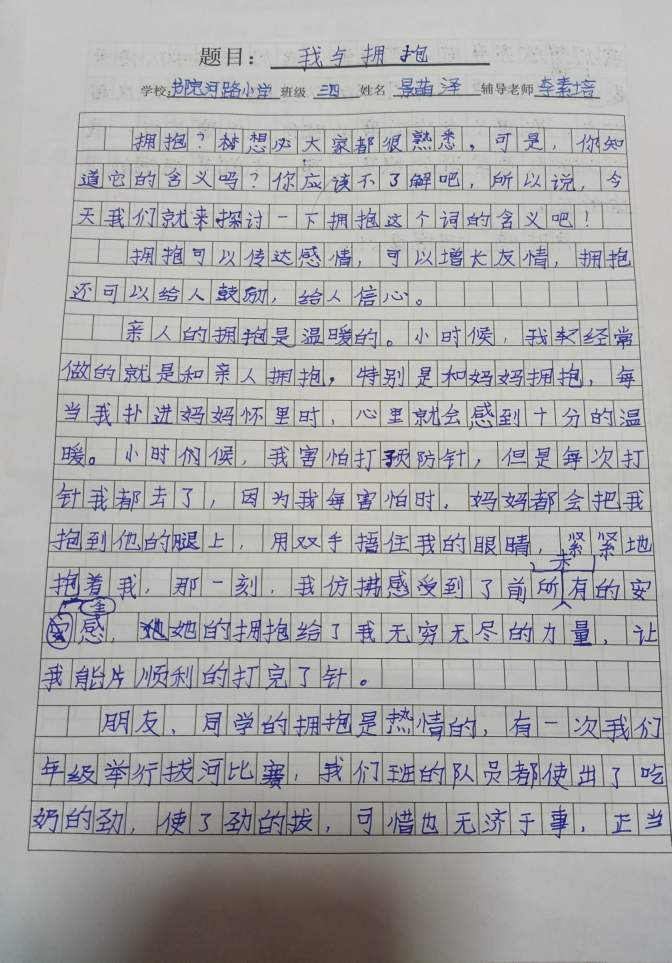 题目：我与拥抱
学校：书院河路小学 班级 三四 姓名 景苗泽 辅导老师 李素培
拥抱？梦想必大家都很熟悉，可是，你知
道它的含义吗？你应该不了解吧，所以说，今
天我们就来探讨一下拥抱这个词的含义吧！
拥抱可以传达感情，可以增长友情，拥抱
还可以给人鼓励，给人信心。
亲人的拥抱是温暖的。小时候，我经常
做的就是和亲人拥抱，特别是和妈妈拥抱，每
当我扑进妈妈怀里时，心里就会感到十分的温
暖。小时候，我害怕打预防针，但是每次打
针我都去了，因为我每害怕时，妈妈都会把我
抱到他的腿上，用双手捂住我的眼睛，紧紧地
抱着我，那一刻，我仿拂感受到了前所未有的安
全感，她的拥抱给了我无穷无尽的力量，让
我能片顺利的打完了针。
朋友、同学的拥抱是热情的，有一次我们
年级举行拔河比赛，我们班的队员都使出了吃
奶的劲，使了劲的拔，可惜也无济于事，正当